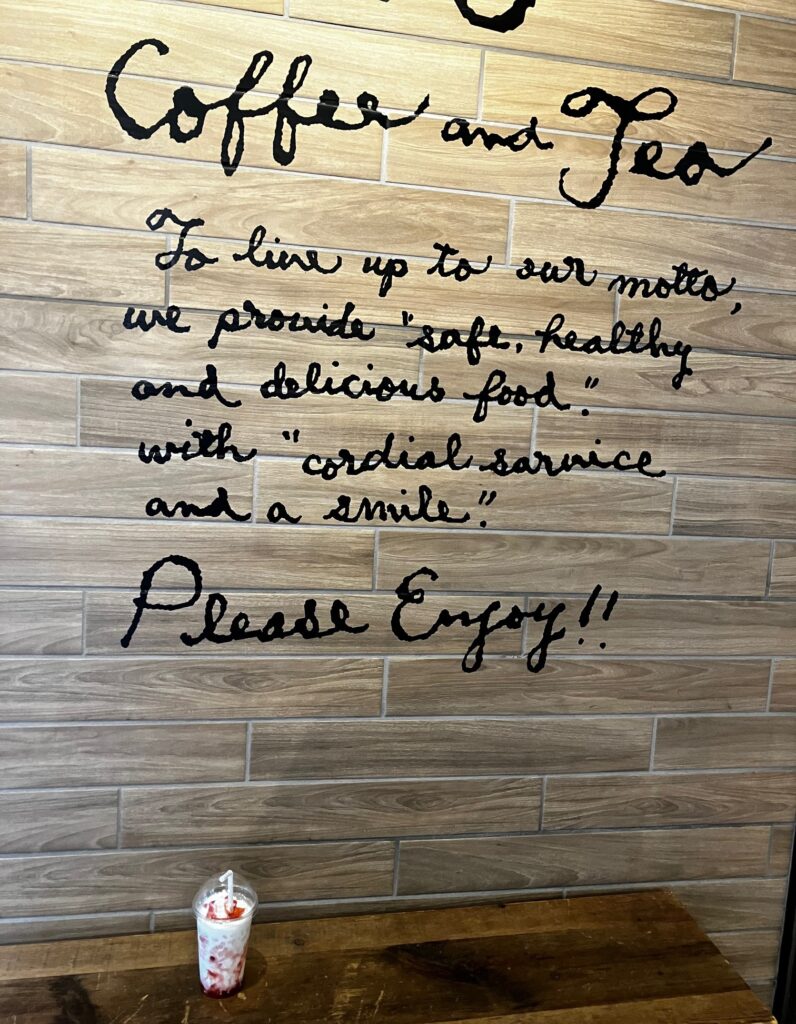 Coffee and Tea
To live up to our motto,
we provide "safe, healthy
and delicious food."
with "cordial sarvice
and a smile."
Please Enjoy!!